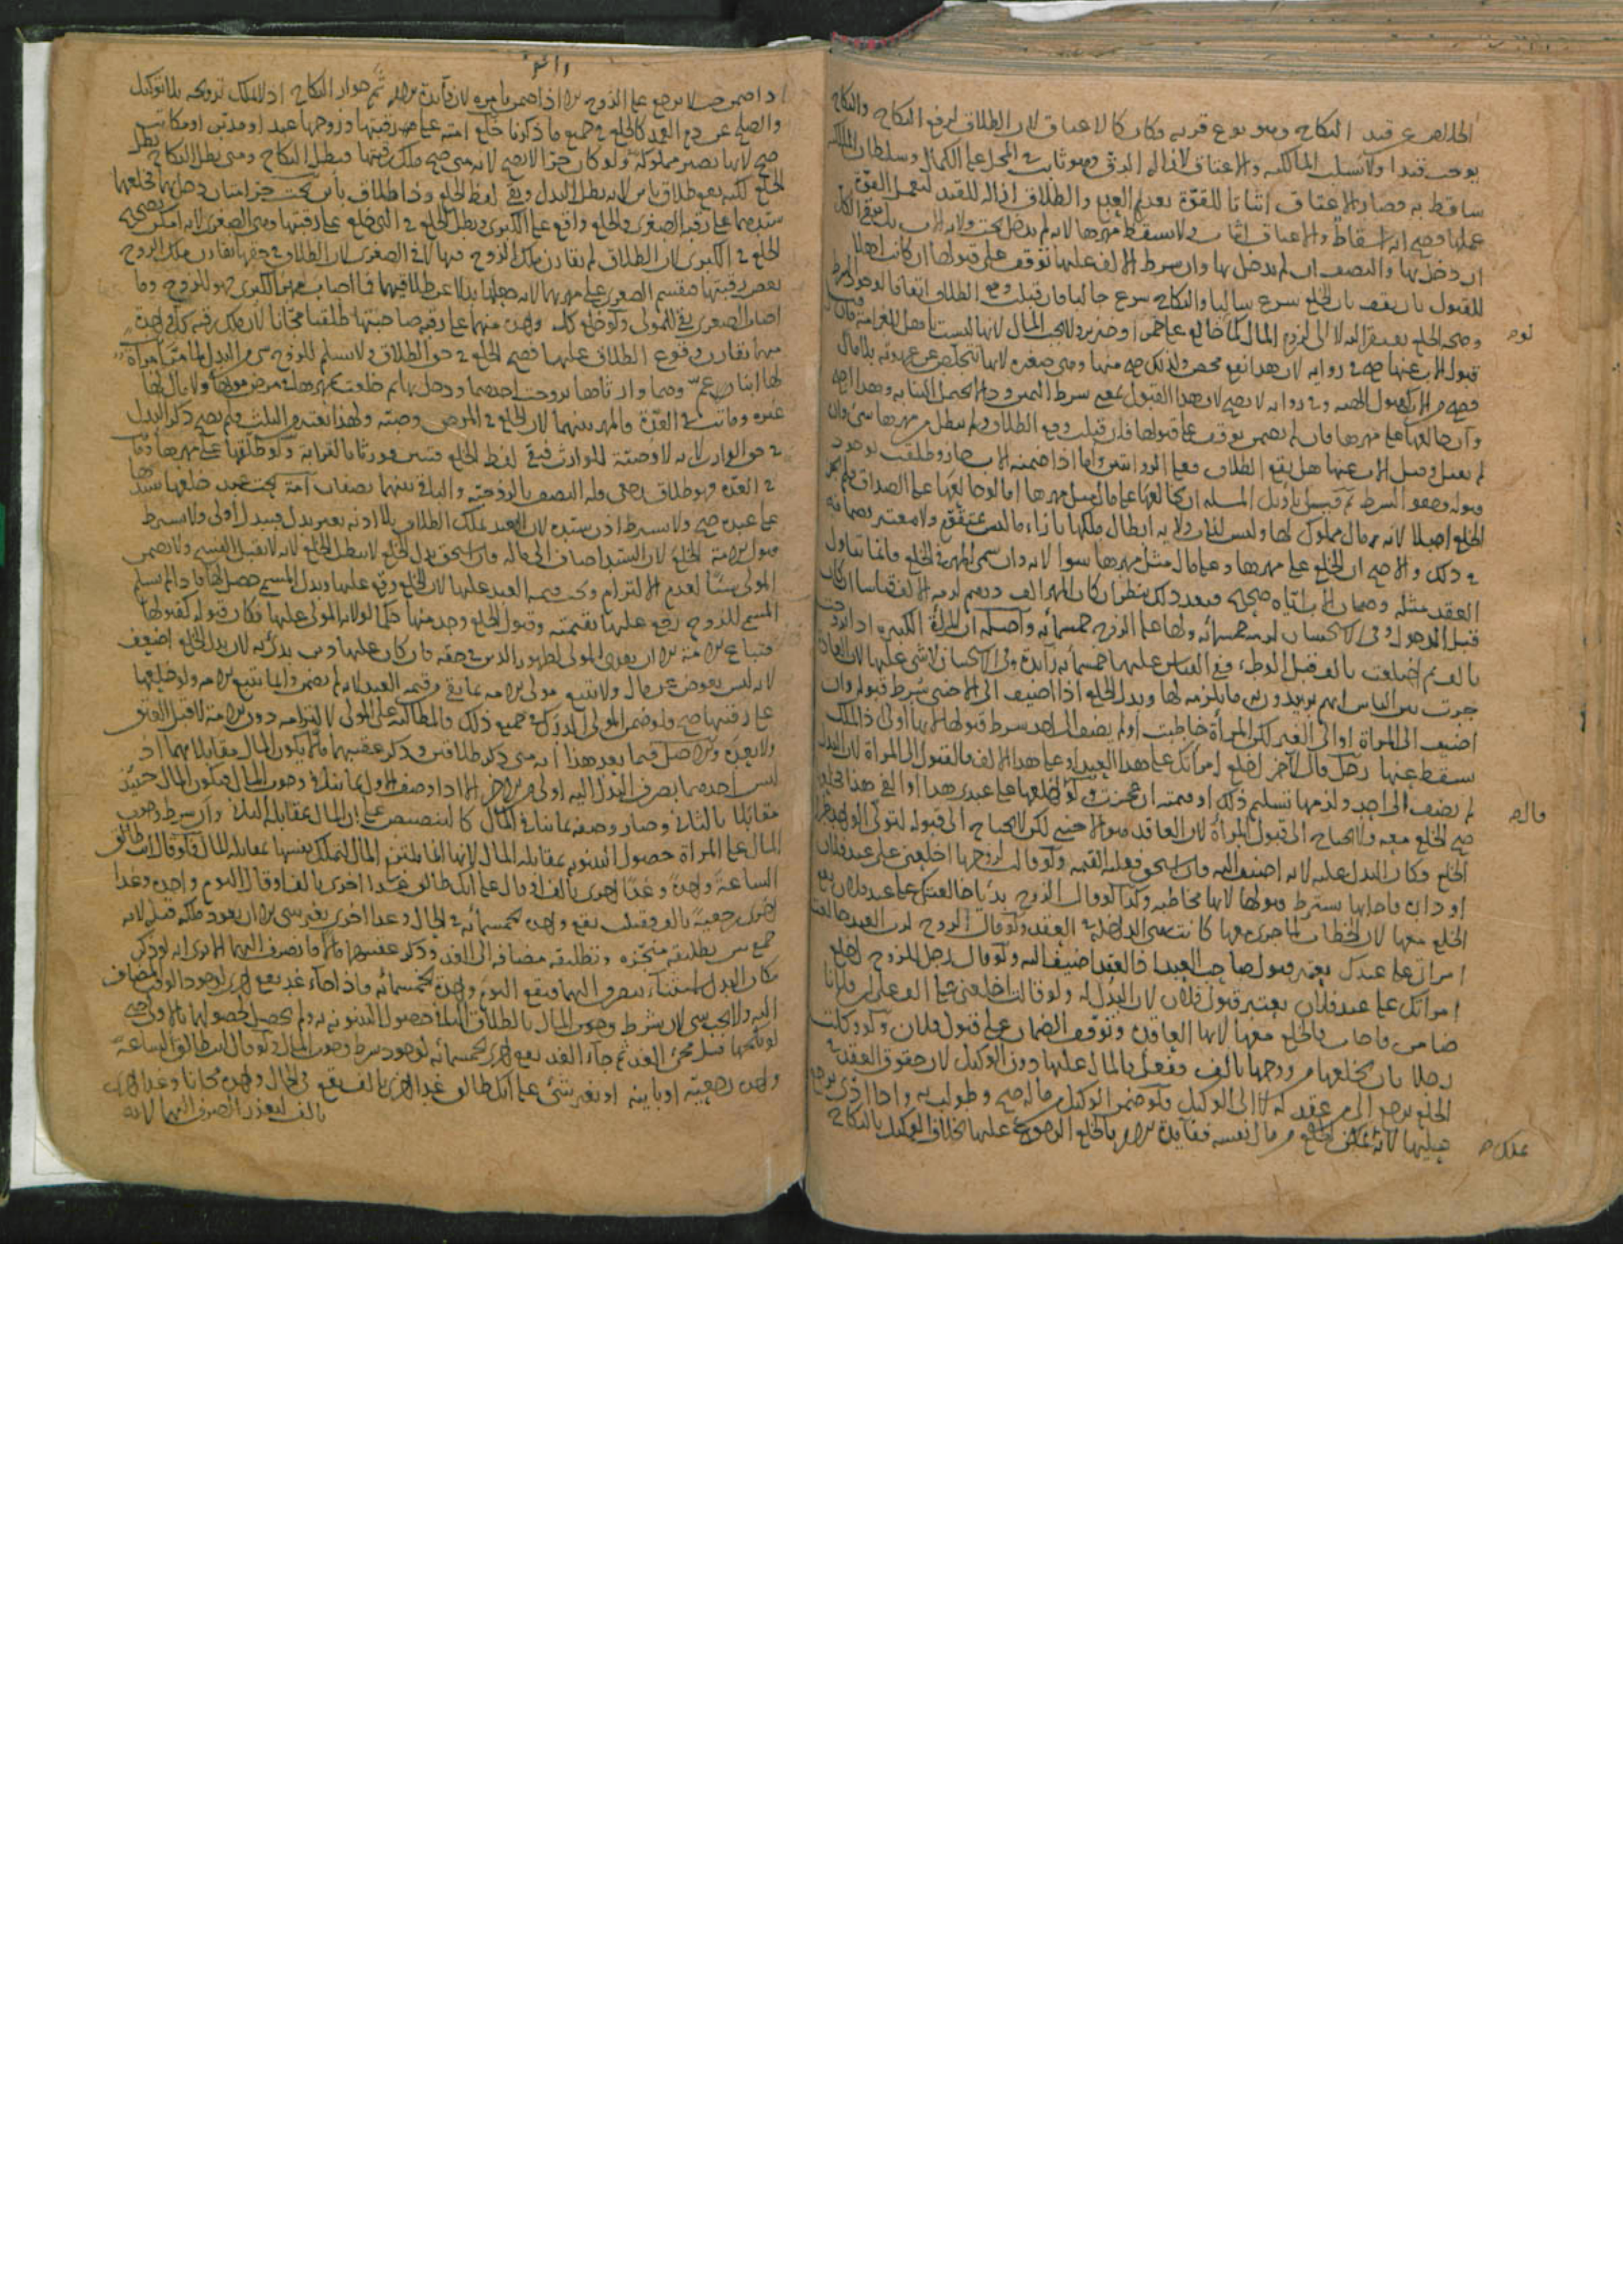 الخلاص عن قيد النكاح وهو نوع قربة فكان كالاعتاق لان الطلاق لرفع النكاح والنكاح
يوجب قيدا ولا يسلب المالكية والاعتاق لازالة الرق وهو ثابت في المحل على الكمال وسلطان المالكية
ساقط به فصار الاعتاق اثباتا للقوة بعد والطلاق ازالة للقيد لتعمل القوة
عملها فصح انه اسقاط والاعتاق اثبات ولا يسقط مهرها لانه لم يدخل تحت ولاية الاب
ان دخل بها والنصف ان لم يدخل بها وان شرط الالف عليها توقف على قبولها ان كانت اهلا
للقبول بان تعرف ان الخلع سالبا والنكاح جالبا فان قبلت وقع الطلاق اتفاقا لوجود الشرط
وصحة الخلع يفتقر اليه لا الى لزوم المال كما خالع على خمر او خنزير ولا يجب المال لانها ليست باهل للغرامة فان
قبول الاب عنها صح في رواية لان هذا نفع محض ولذلك صح منها وهي صغيرة لانها تتخلص عن عهدته بلا مال
فصح من الاب كقبول الهبة وفي رواية لا يصح لان هذا القبول بمعنى شرط اليمين وذا لا يحتمل النيابة وهذا اصح
وان خالعها على مهرها فان لم يضمن توقف على قبولها فان قبلت وقع الطلاق ولم يبطل من مهرها شئ وان
لم تقبل وقبل الاب عنها هل يقع الطلاق فعلى الروايتين واما اذا ضمنه الاب صار وطلقت لوجود
قبوله وهو الشرط ثم قيل تأويل المسئلة ان خالعها على مال مثل مهرها اما لو خالعها على الصداق لم يجز
الخلع اصلا لانه مال مملوك لها وليس للاب ولاية ابطال ملكها بازاء ما ليس بمتقوم ولا معتبر بضمانه
في ذلك والاصح ان الخلع على مهرها وعلى مال مثل مهرها سواء لانه وان سمى المهر في الخلع فانما يتناول
العقد مثله وضمان الاب اياه صحيح فبعد ذلك ينظر ان كان المهر الف درهم لزمه الالف قياسا ان كان
قبل الدخول وفي الاستحسان لزمه خمسمائة ولها على الزوج خمسمائة واصله ان المرأة الكبيرة اذا
بالف ثم اختلعت بالف قبل الوطء ففي القياس عليها خمسمائة زائدة وفي الاستحسان لا شئ عليها لان العادة
جرت بين الناس انهم يريدون به ما يلزمه لها وبدل الخلع اذا اضيف الى الاجنبي شرط قبوله وان
اضيف الى المرأة او الى الغير لكن المرأة خاطبت او لم يضف الى احد شرط قبولها لانها اولى ذا الملك
يسقط عنها رجل قال لآخر اخلع امرأتك على هذا العبد او على هذا الالف فالقبول الى المرأة لان البدل
لم يضف الى احد ولزمها تسليم ذلك او قيمته ان عجزت ولو قال اخلعها على عبدي هذا او الفي هذا
صح الخلع معه ولا يحتاج الى قبول المرأة لان العاقد هو الاجنبي لكن لا يحتاج الى قبوله لتولي الواحد
الخلع وكان البدل عليه لانه اضيف اليه فان استحق فعليه القيمة ولو قالت لزوجها اخلعني على عبد فلان
او دابة فاجابها يشترط قبولها لانها مخاطبة وكذا لو قال الزوج بديا خالعتك على عبد فلان يقع
الخلع معها لان الخطاب لما جرى معها كانت هي الداخلة في العقد ولو قال الزوج لرب العبد خالعت
امرأتي على عبدك يعتبر قبول صاحب العبد اذ العقد اضيف اليه ولو قال رجل للزوج اخلع
امرأتك على عبد فلان يعتبر قبول فلان لان البدل له ولو قالت اخلعني على الف على ان فلانا
ضامن فاجاب فالخلع معها لانها العاقدة وتوقف الضمان على قبول فلان ولو وكلت
رجلا بان يخلعها من زوجها بالف ففعل فالمال عليها دون الوكيل لان حقوق العقد في
الخلع يرجع الى من عقد له لا الى الوكيل فلو ضمن الوكيل من ماله صح وطولب به واذا ادى يرجع
عليها لانه يمكن الخلع من مال نفسه ففائدة الامر بالخلع الرجوع عليها بخلاف الوكيل بالنكاح
اذا ضمن حيث لا يرجع على الزوج الا اذا ضمن بامره لان فائدة الامر ثم جواز النكاح اذ لا يملك تزويجه بلا توكيل
والصلح عن دم العمد كالخلع في جميع ما ذكرنا خلع امته على رقبتها وزوجها عبد او مدبر او مكاتب
صح لانها تصير مملوكة ولو كان حرا لا يصح لانه متى صح ملك رقبتها فيبطل النكاح ومتى بطل النكاح بطل
الخلع لكنه يقع طلاق بائن لانه بطل البدل وبقي لفظ الخلع وذا طلاق بائن تحت حر امتان دخل بهما فخلعهما
سيدهما على رقبة الصغرى فالخلع واقع على الكبرى وبطل الخلع في التي خلع على رقبتها وهي الصغرى لانه امكن تصحيح
الخلع في الكبرى لان الطلاق لم يقارن ملك الزوج فيها لا في الصغرى لان الطلاق في حقها يقارن ملك الزوج
بعض رقبتها فتقسم الصغرى على مهريهما لانه جعلها بدلا عن طلاقيهما فما اصاب مهر الكبرى فهو للزوج وما
اصاب الصغرى بقي للمولى ولو خلع كل واحدة منهما على رقبة صاحبتها طلقتا مجانا لان ملك رقبة كل واحدة
منهما يقارن وقوع الطلاق عليها فصح الخلع في حق الطلاق ولا يسلم للزوج شئ من البدل امرأة
لها ابنا عم وهما وارثاها تزوجت احدهما ودخل بها ثم خلعت بمهرها في مرض موتها ولا مال لها
غيره وماتت في العدة فالمهر بينهما لان الخلع في المرض وصية ولهذا يعتبر من الثلث ولم يصح ذكر البدل
في حق الوارث لانه لا وصية للوارث فبقي لفظ الخلع فتبين فورثا بالقرابة ولو طلقها على مهرها وماتت
في العدة فهو طلاق رجعي وله النصف بالزوجية والباقي بينهما نصفان امة تحت عبد خلعها سيدها
على عبده صح ولا يشترط اذن سيده لان العبد يملك الطلاق بلا اذنه بغير بدل فببدل اولى ولا يشترط
قبول الامة الخلع لان السيد اضاف الى ماله فان استحق بدل الخلع لا يبطل الخلع لانه لا يقبل الفسخ ولا يضمن
المولى شيئا لعدم الالتزام وتجب قيمة العبد عليها لان الخلع وقع عليها وبدل المسمى حصل لها فاذا لم يسلم
المسمى للزوج رجع عليها بقيمته وقبول الخلع وجد منها حكما لولاية المولى عليها فكان قبوله كقبولها
فتباع الامة الا ان يفدي المولى لظهور الدين في حقه فان كان عليها دين بدئ به لان بدل الخلع اضعف
لانه ليس بعوض عن مال ولا يتبع مولى الامة بما بقي من قيمة العبد لانه لم يضمن وانما يتبع الامة ولو خلعها
على رقبتها صح ولو ضمن المولى الدرك في جميع ذلك فالمطالبة على المولى لالتزامه دون الامة لا قبل العتق
ولا بعده والاصل فيما بعد هذا انه متى ذكر طلاقين وذكر عقيبهما مالا يكون المال مقابلا بهما اذ
ليس احدهما بصرف البدل اليه اولى من الآخر الا اذا وصف الاول بما ينافي وجوب المال فيكون المال حينئذ
مقابلا بالثاني وصار وصفه بما ينافي المال كالتنصيص على ان المال بمقابلة الثاني وان شرط وجوب
المال على المرأة حصول البينونة بمقابلة المال لانها انما يلتزم المال لتملك نفسها بمقابلة المال فلو قال انت طالق
الساعة واحدة وغدا اخرى بالف او قال على انك طالق غدا اخرى بالف او قال اليوم واحدة وغدا
اخرى رجعية بالف فقبلت يقع واحدة بخمسمائة في الحال وغدا اخرى بغير شئ الا ان يعود ملكه قبله لانه
جمع بين تطليقة منجزة وتطليقة مضافة الى الغد وذكر عقيبهما مالا فانصرف اليهما الا يرى انه لو ذكر
مكان البدل استثناء ينصرف اليهما فيقع اليوم واحدة بخمسمائة فاذا جاء غد يقع اخرى لوجود الوقت المضاف
اليه ولا يجب شئ لان شرط وجوب المال بالطلاق الثاني حصول البينونة به ولم يحصل لحصولها بالاولى حتى
لو نكحها قبل مجئ الغد ثم جاء الغد يقع اخرى بخمسمائة لوجود شرط وجوب المال ولو قال انت طالق الساعة
واحدة رجعية او باينة او بغير شئ على انك طالق غدا اخرى بالف يقع في الحال واحدة مجانا وغدا اخرى
بالف لتعذر الصرف اليهما لانه